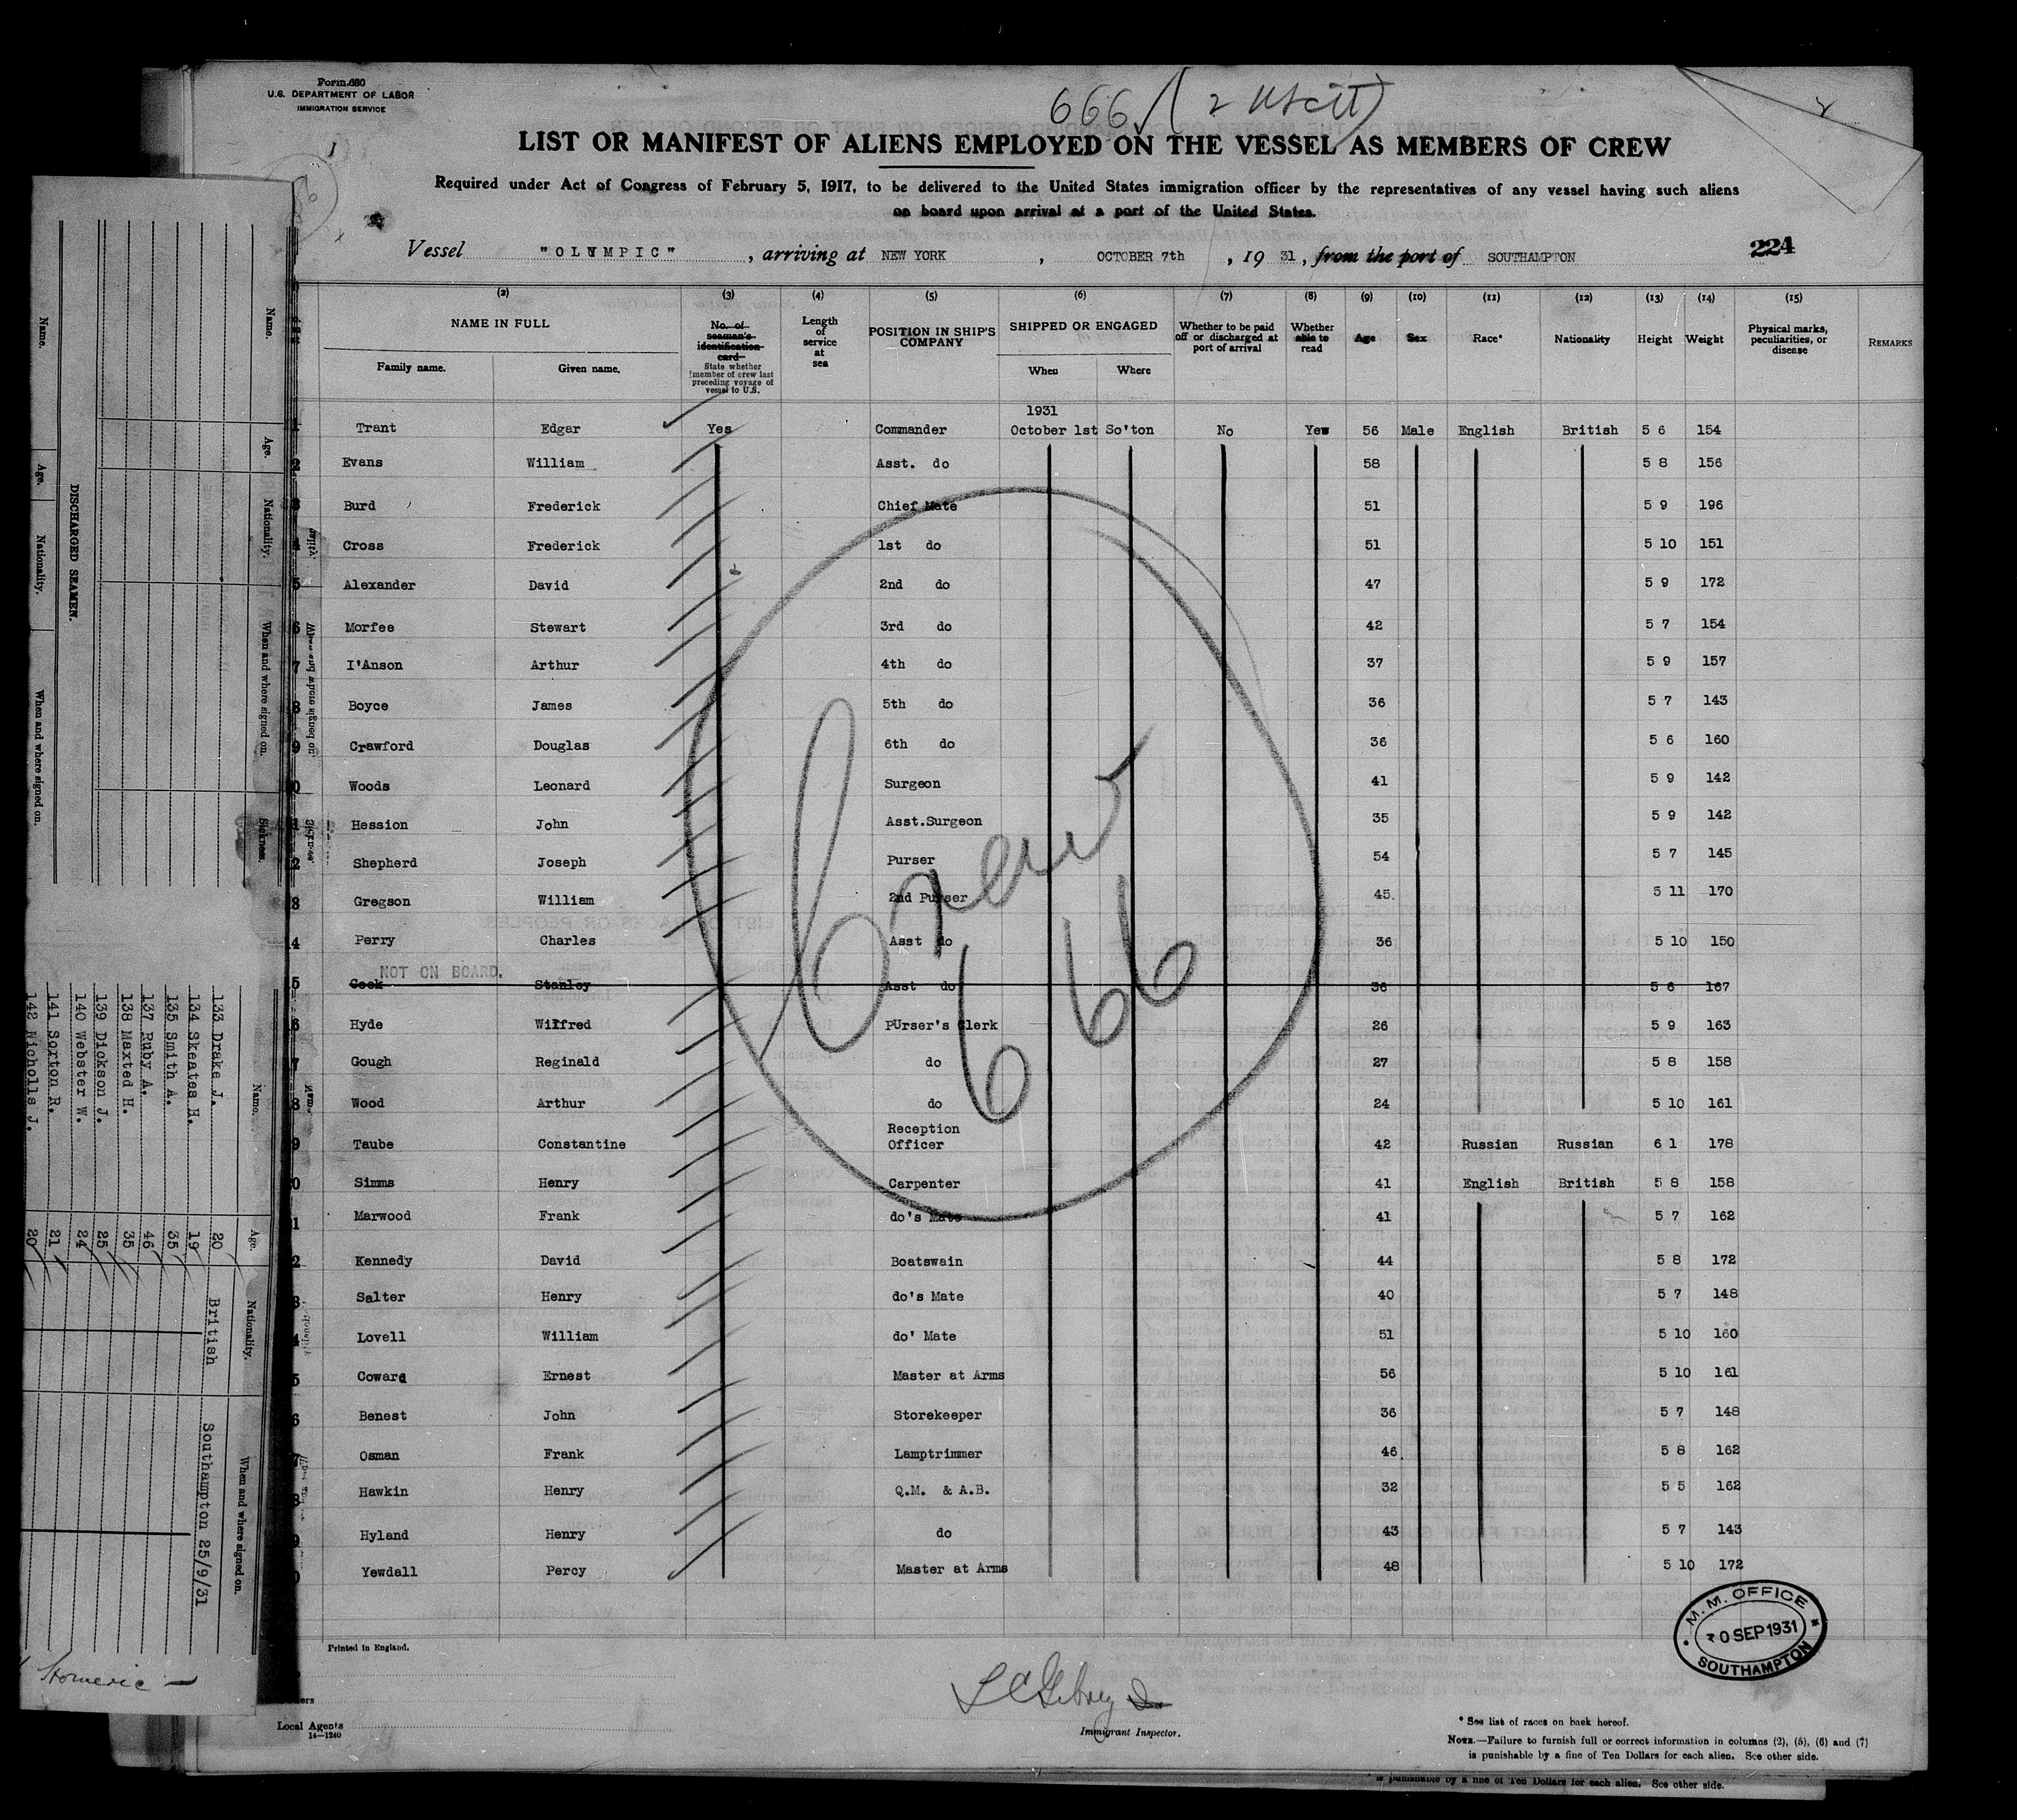 Form 680
U.S. DEPARTMENT OF LABOR
IMMIGRATION SERVICE
666 / (2
LIST OR MANIFEST OF ALIENS EMPLOYED ON THE VESSEL AS MEMBERS OF CREW
Required under Act of Congress of February 5, 1917, to be delivered to the United States immigration officer by the representatives of any vessel having such aliens
on board upon arrival at a port of the United States.
Vessel "OLYMPIC", arriving at NEW YORK, OCTOBER 7th, 19 31, from the port of SOUTHAMPTON
224
(2) (3) (4) (5) (6) (7) (8) (9) (10) (11) (12) (13) (14) (15)
NAME IN FULL
Family name. Given name.
No. of seaman's identification card
State whether member of crew last preceding voyage of vessel to U.S.
Length of service at sea
POSITION IN SHIP'S COMPANY
SHIPPED OR ENGAGED
When Where
Whether to be paid off or discharged at port of arrival
Whether able to read
Age Sex Race* Nationality Height Weight
Physical marks, peculiarities, or disease
REMARKS
1931
1 Trant Edgar Yes Commander October 1st So'ton No Yes 56 Male English British 5 6 154
2 Evans William Asst. do 58 5 8 156
3 Burd Frederick Chief Mate 51 5 9 196
4 Cross Frederick 1st do 51 5 10 151
5 Alexander David 2nd do 47 5 9 172
6 Morfee Stewart 3rd do 42 5 7 154
7 I'Anson Arthur 4th do 37 5 9 157
8 Boyce James 5th do 36 5 7 143
9 Crawford Douglas 6th do 36 5 6 160
0 Woods Leonard Surgeon 41 5 9 142
1 Hession John Asst.Surgeon 35 5 9 142
2 Shepherd Joseph Purser 54 5 7 145
3 Gregson William 2nd Purser 45. 5 11 170
4 Perry Charles Asst do 36 5 10 150
NOT ON BOARD.
5 Cook Stanley Asst do 36 5 6 167
6 Hyde Wilfred PUrser's Clerk 26 5 9 163
7 Gough Reginald do 27 5 8 158
8 Wood Arthur do 24 5 10 161
9 Taube Constantine Reception Officer 42 Russian Russian 6 1 178
0 Simms Henry Carpenter 41 English British 5 8 158
1 Marwood Frank do's Mate 41 5 7 162
2 Kennedy David Boatswain 44 5 8 172
3 Salter Henry do's Mate 40 5 7 148
4 Lovell William do' Mate 51 5 10 160
5 Coward Ernest Master at Arms 56 5 10 161
6 Benest John Storekeeper 36 5 7 148
7 Osman Frank Lamptrimmer 46 5 8 162
8 Hawkin Henry Q.M. & A.B. 32 5 5 162
9 Hyland Henry do 43 5 7 143
0 Yewdall Percy Master at Arms 48 5 10 172
Crew
666
Printed in England.
Local Agents
14—1240
Immigrant Inspector.
M. M. OFFICE
30 SEP 1931
SOUTHAMPTON
* See list of races on back hereof.
NOTE.—Failure to furnish full or correct information in columns (2), (5), (6) and (7)
is punishable by a fine of Ten Dollars for each alien. See other side.
is punishable by a fine of Ten Dollars for each alien. See other side.
DISCHARGED SEAMEN.
Name. Age. Nationality. When and where signed on.
Name. Age. Nationality. When and where signed on. Sickness.
Name. Age. Nationality. When and where signed on.
133 Drake J. 20 British Southampton 25/9/31
134 Skeates H. 19
135 Smith A. 35
137 Ruby A. 46
138 Maxted H. 35
139 Dickson J. 25
140 Webster W. 24
141 Sorton R. 21
142 Nicholls J. 20
Homeric —